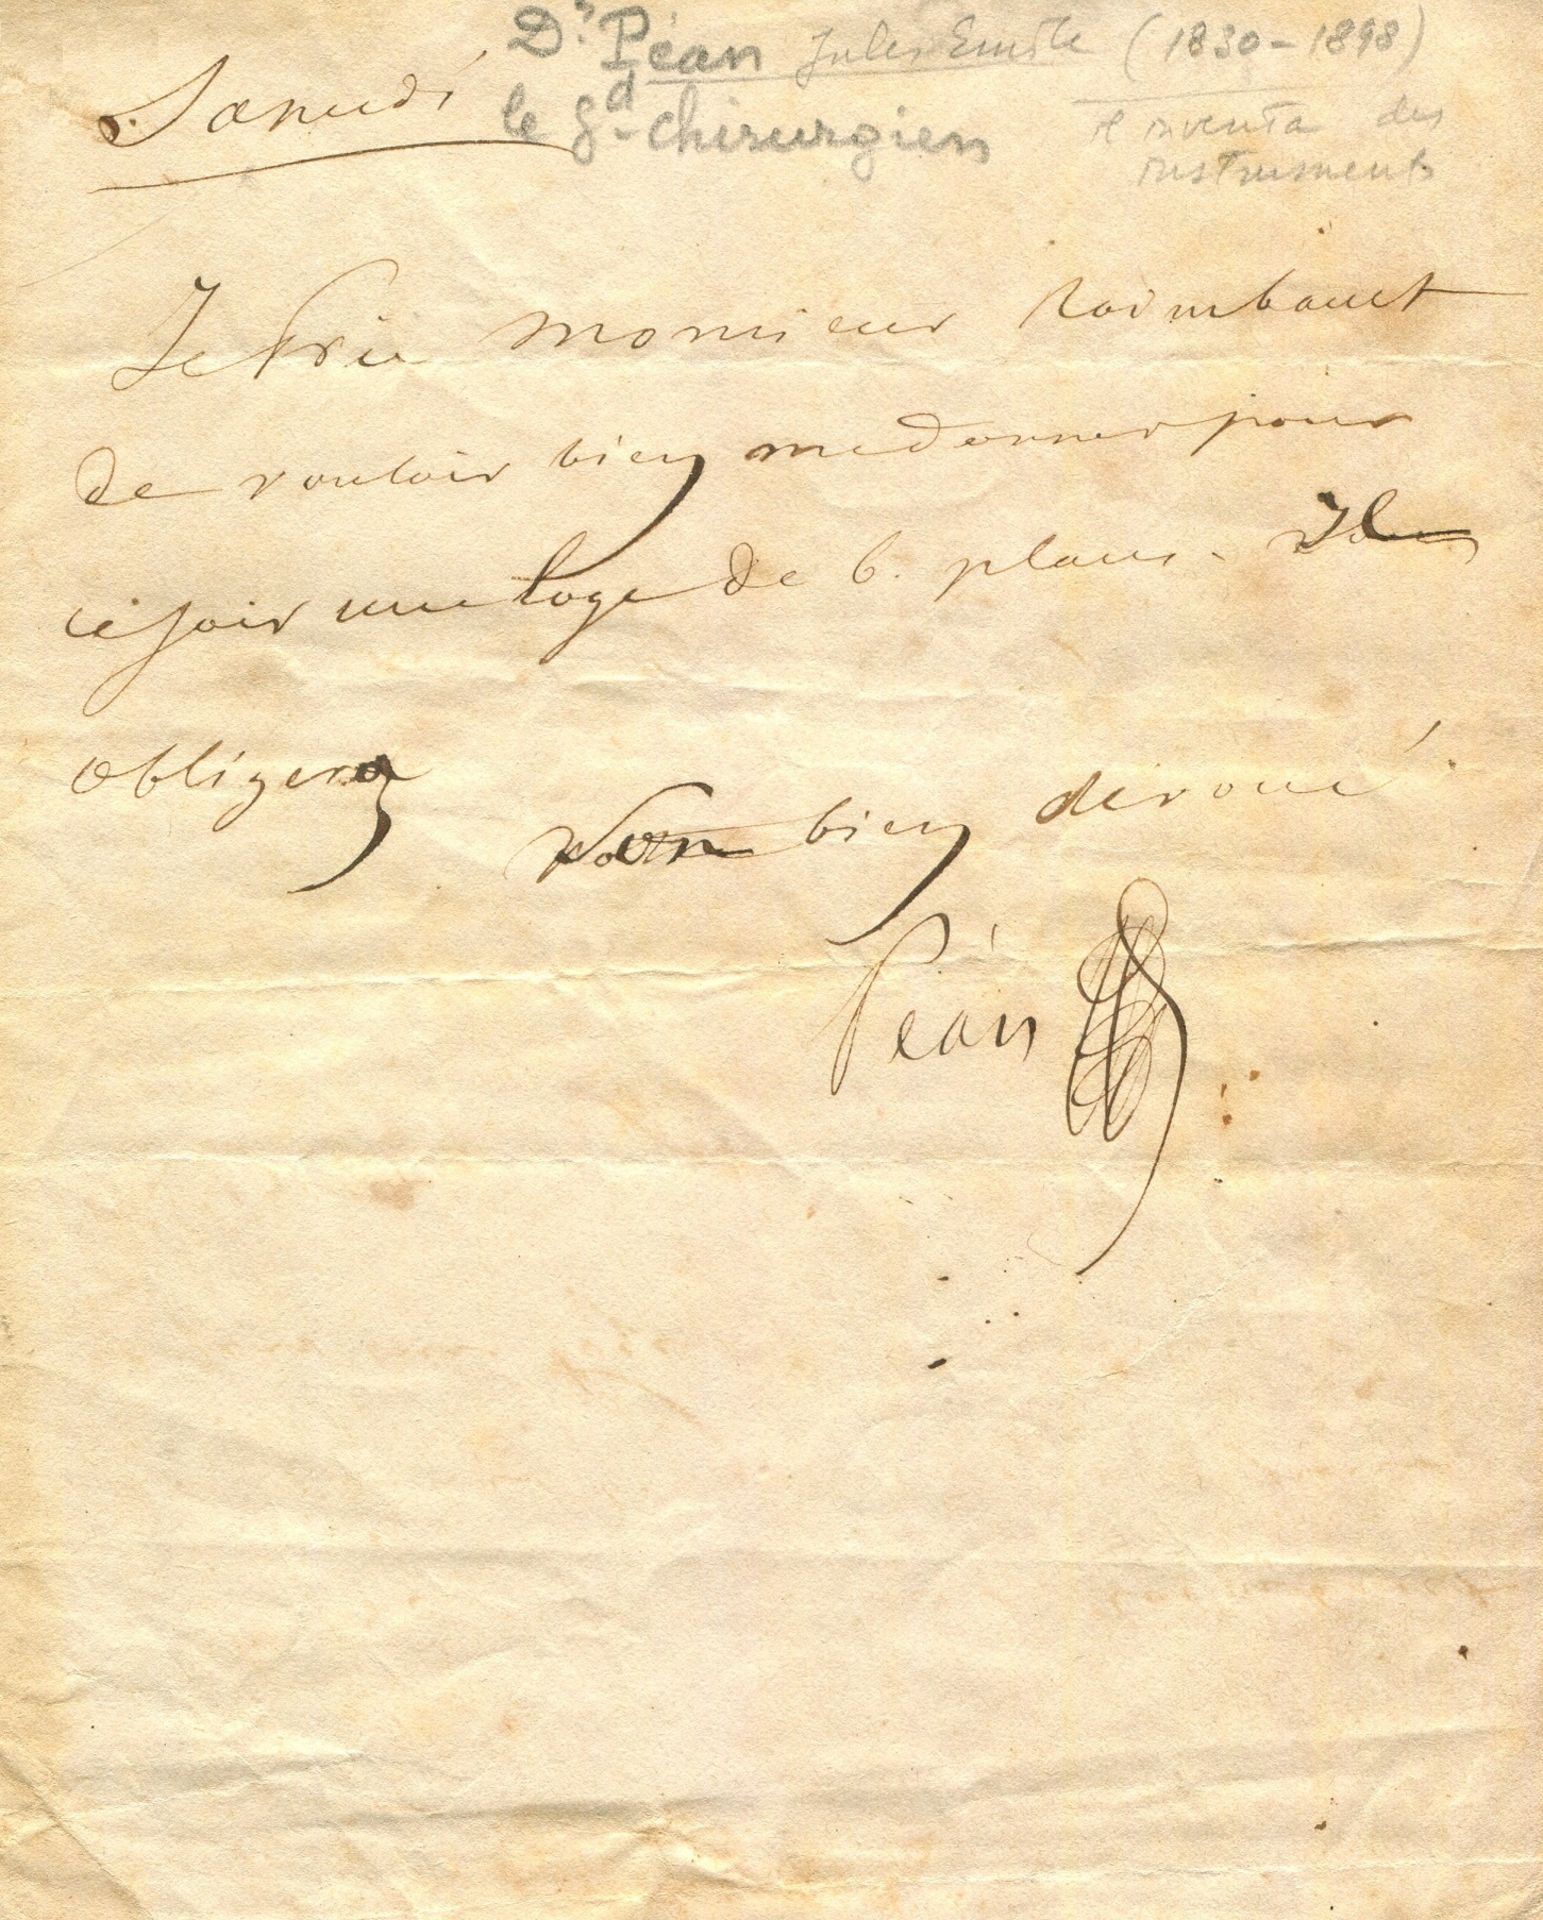 Dr Péan Jules Emile (1830-1898)
le gd chirurgien
il inventa des
instruments
Samedi
Je Prie monsieur Raimbault
de vouloir bien me donner pour
ce soir une loge de 6. places. Il
obligera
son bien dévoué
Péan